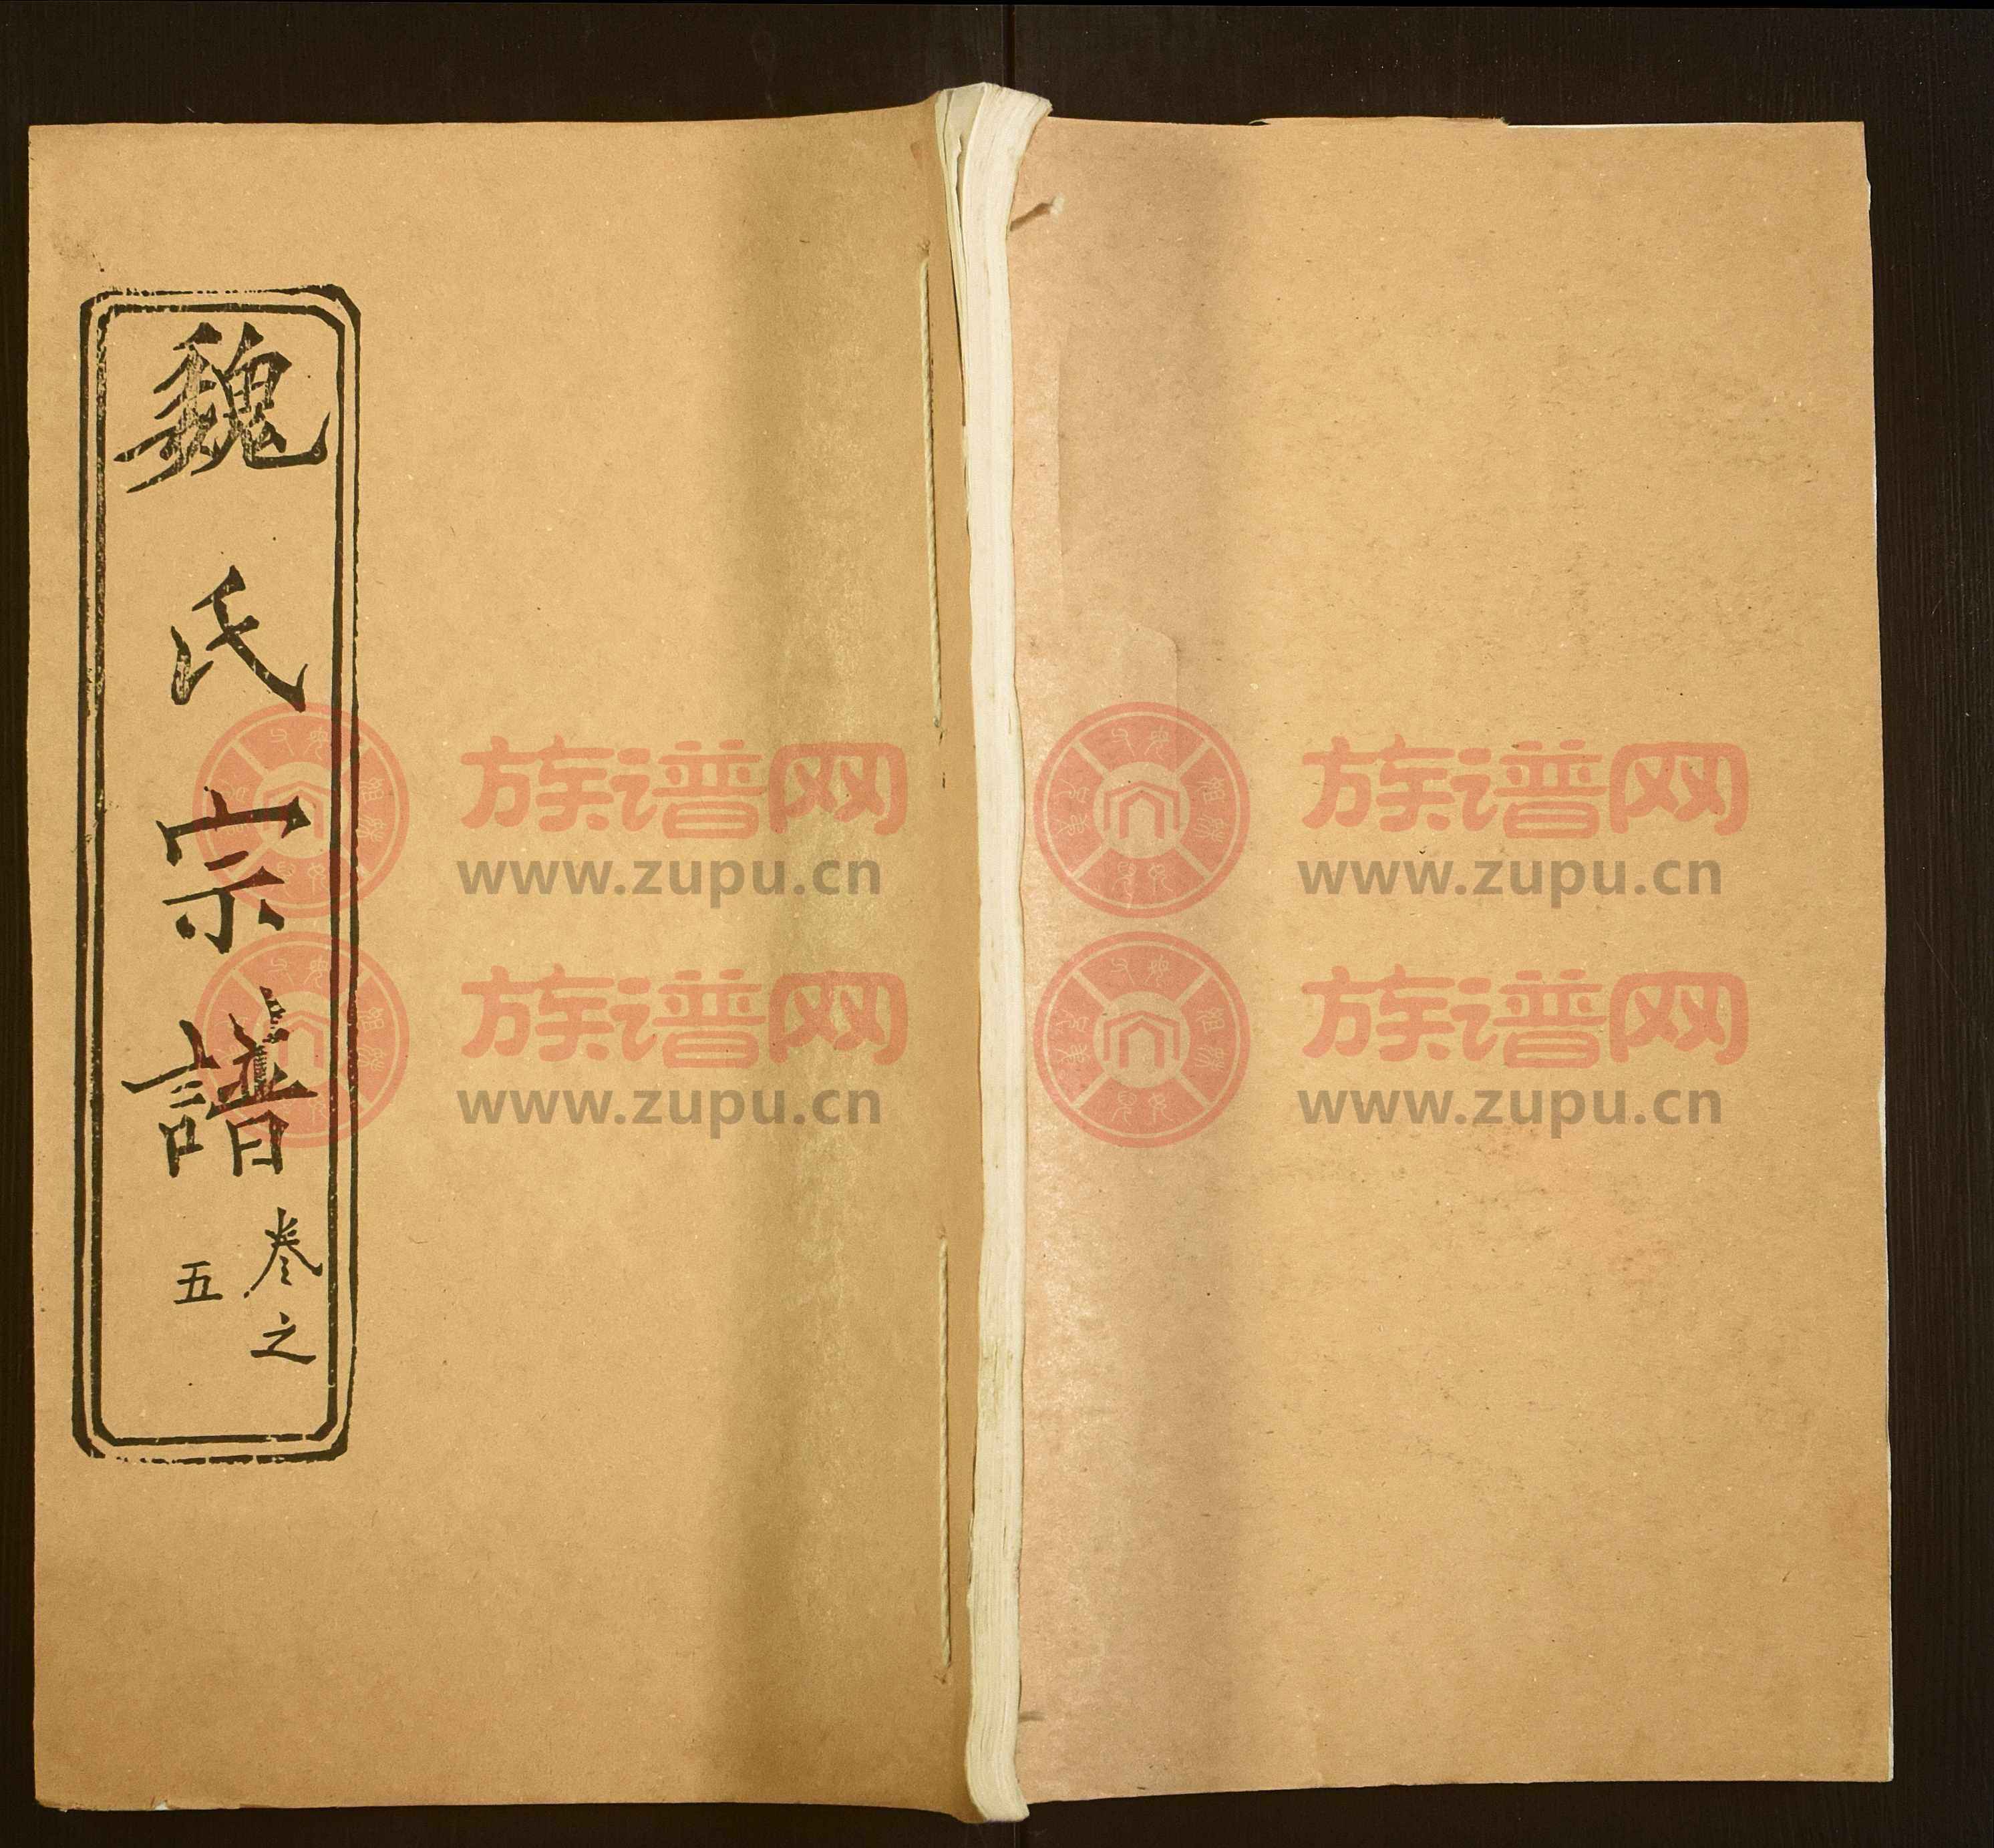 魏氏宗譜
卷之
五
族谱网
www.zupu.cn
族谱网
www.zupu.cn
族谱网
www.zupu.cn
族谱网
www.zupu.cn